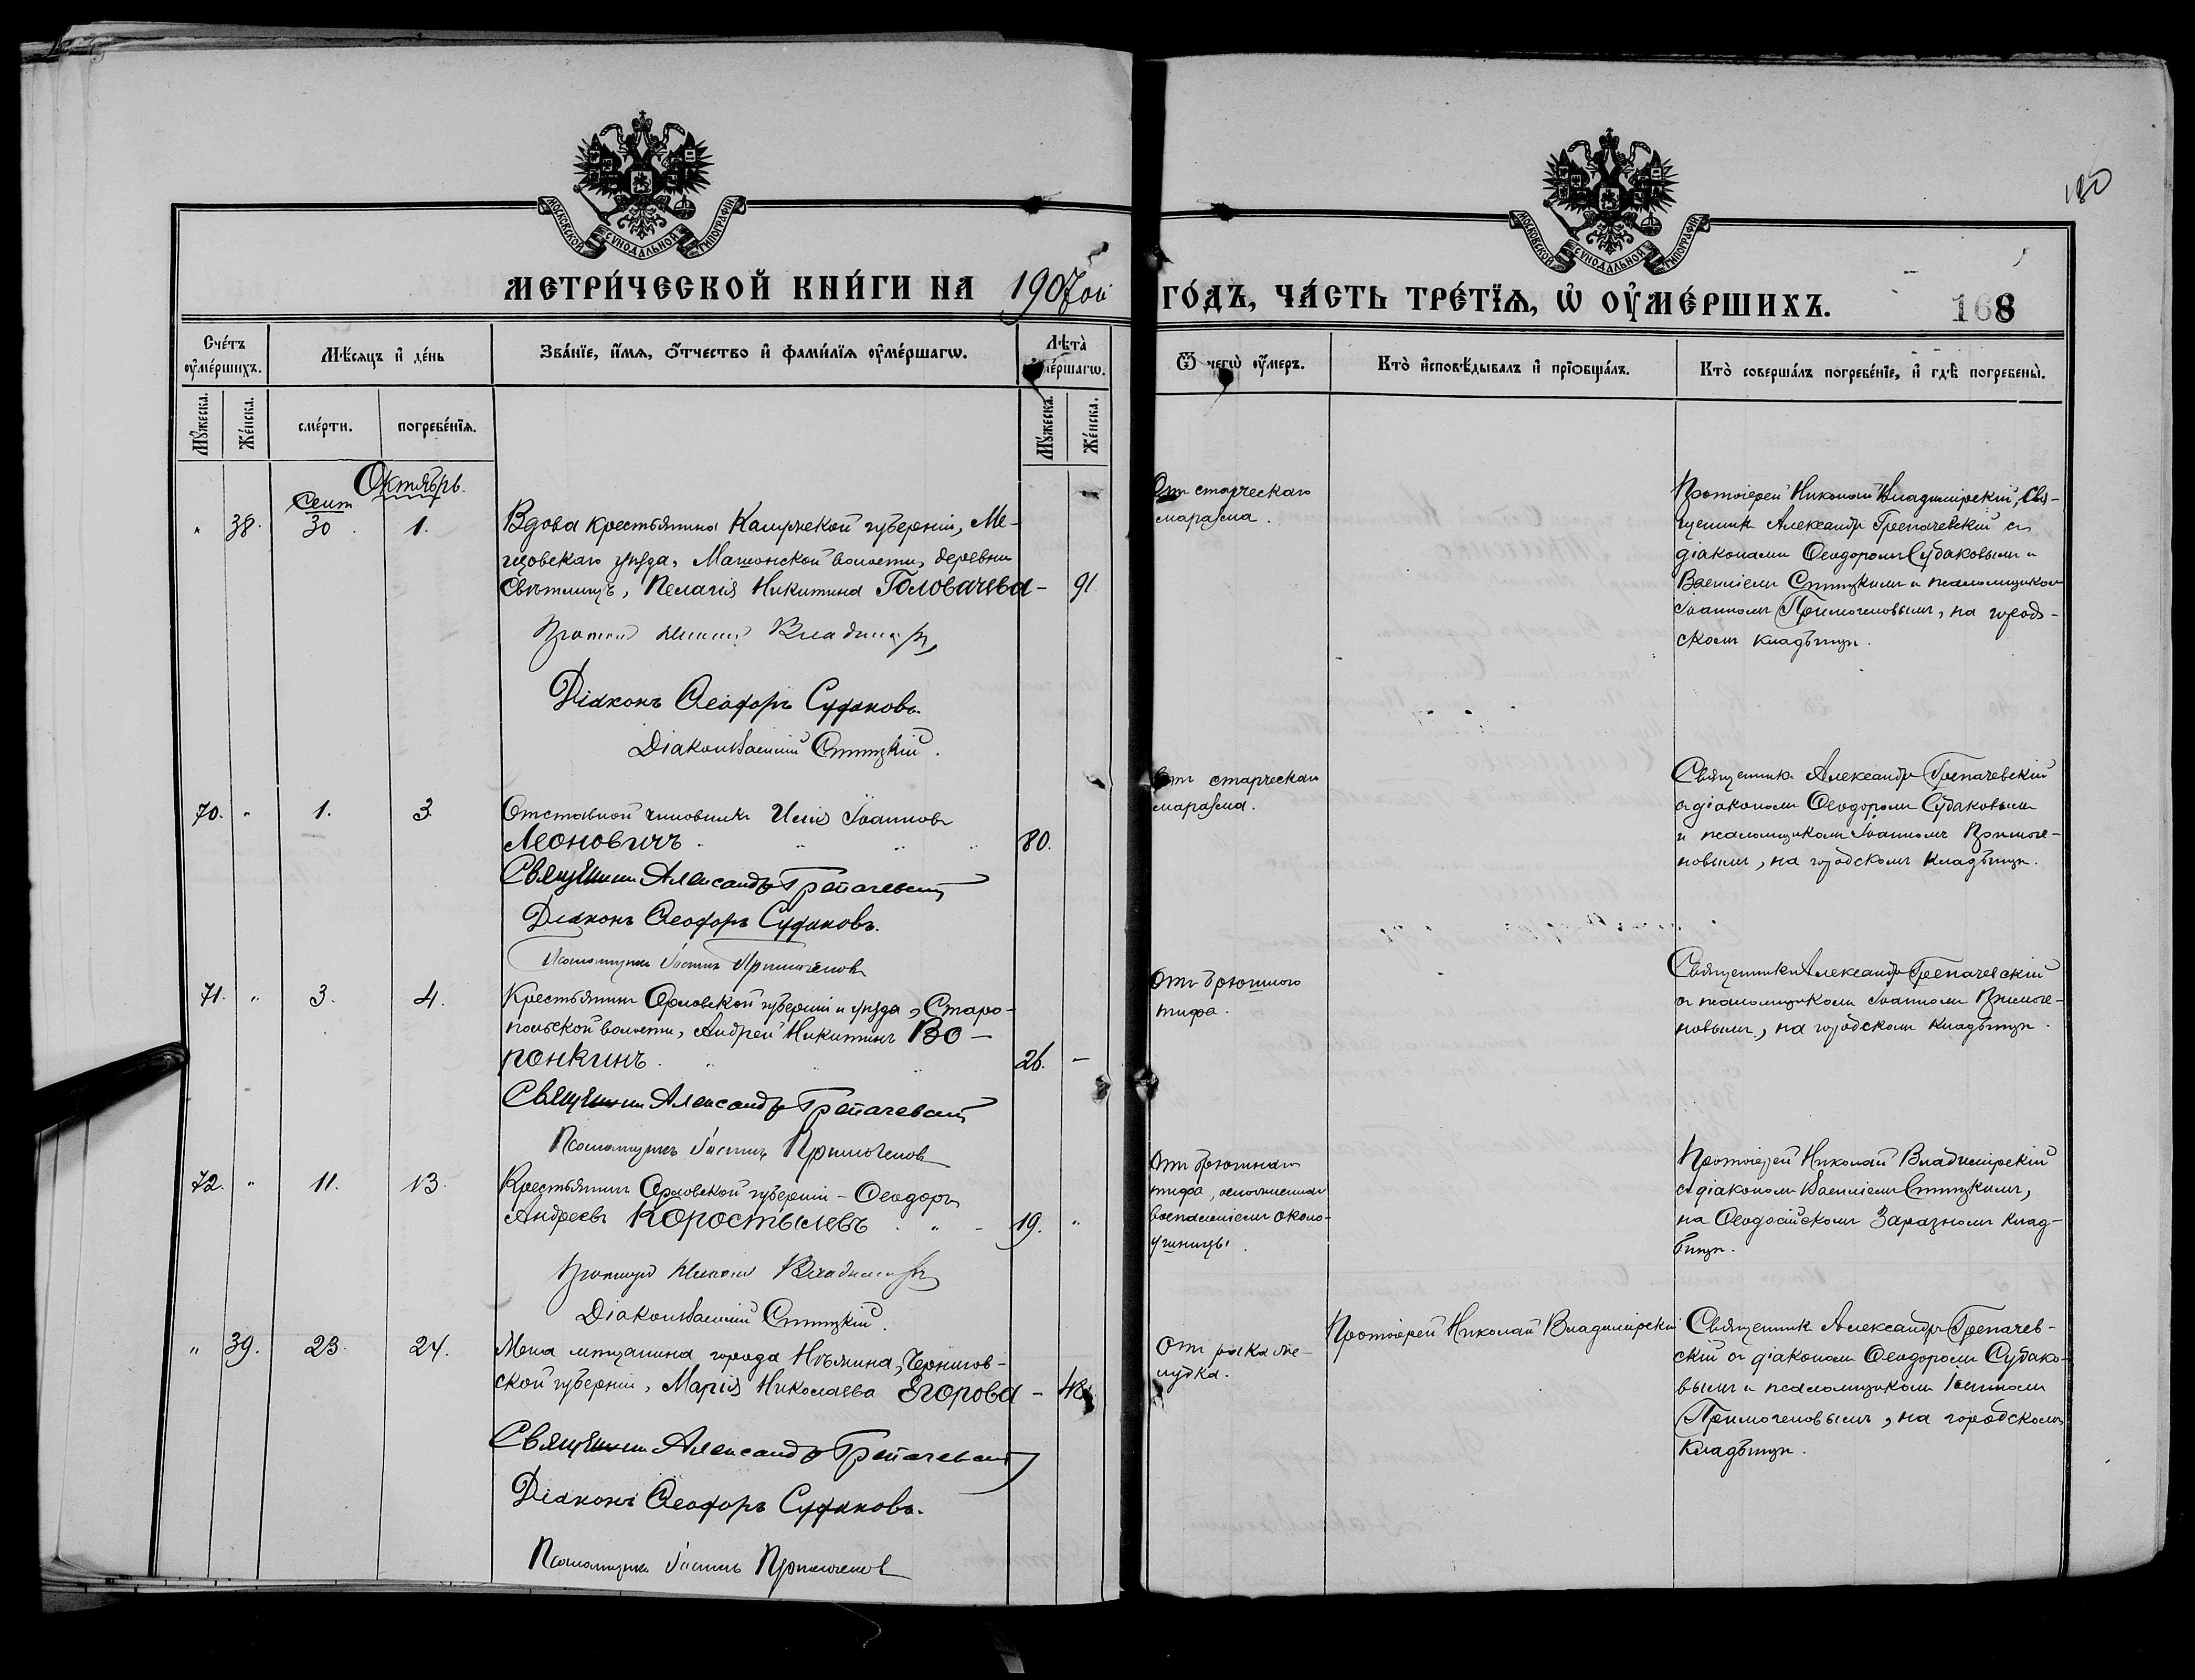 180
МОСКОВСКОЙ СѴНОДАЛЬНОЙ ТИПОГРАФІИ
МОСКОВСКОЙ СѴНОДАЛЬНОЙ ТИПОГРАФІИ
МЕТРИ́ЧЕСКОЙ КНИ́ГИ НА 1907ой ГО́ДЪ, ЧА́СТЬ ТРЕ́ТЇѦ, Ѡ҆ ОУ҆МЕ́РШИХЪ.
168
Сче́тъ оу҆ме́ршихъ.
Мѣ́сяцъ и҆ де́нь
Зва́нїе, и҆́мѧ, ѻ҆́тчество и҆ фами́лїѧ оу҆ме́ршагѡ.
Лѣта̀ ме́ршагѡ.
Ѿ чегѡ̀ оу҆́меръ.
Кто̀ и҆сповѣ́дывалъ и҆ прїѻбща́лъ.
Кто̀ соверша́лъ погребе́нїе, и҆ гдѣ̀ погребены̀.
Мꙋ́жеска.
Же́нска.
сме́рти.
погребе́нїѧ.
Мꙋ́жеска.
Же́нска.
Октябрь.
Сент
" 38. 30. 1.
Вдова крестьянина Калужской губерніи, Ме-
щовскаго уѣзда, Мошонской волости, деревни
Свѣтлицъ, Пелагія Никитина Головачева - 91
Діаконъ Ѳеодоръ Судаковъ.
Діаконъ Василій Стицкій.
От старческаго
маразма.
Протоіерей Николай Владимірскій, Свя-
щенникъ Александръ Грепачевскій съ
діаконами Ѳеодоромъ Судаковымъ и
Василіемъ Стицкимъ и псаломщикомъ
Іоанномъ Примоченовымъ, на город-
скомъ кладбищѣ.
70. " 1. 3.
Отставной чиновникъ Илія Іоанновъ
Леоновичъ 80.
Священник Александръ Грепачевскій
Діаконъ Ѳеодоръ Судаковъ.
Псаломщикъ Іоаннъ Примоченовъ
От старческаго
маразма.
Священникъ Александръ Грепачевскій
съ діакономъ Ѳеодоромъ Судаковымъ
и псаломщикомъ Іоанномъ Примоче-
новымъ, на городскомъ кладбищѣ.
71. " 3. 4.
Крестьянинъ Орловской губерніи и уѣзда, Старо-
польской волости, Андрей Никитинъ Во-
ронкинъ. 26. -
Священник Александръ Грепачевскій
Псаломщикъ Іоаннъ Примоченовъ
От брюшного
тифа.
Священникъ Александръ Грепачевскій
съ псаломщикомъ Іоанномъ Примоче-
новымъ, на городскомъ кладбищѣ.
72. " 11. 13.
Крестьянинъ Орловской губерніи - Ѳеодоръ
Андреевъ Коростылевъ - 19. "
Діаконъ Василій Стицкій.
От брюшного
тифа, осложненнаго
воспаленіемъ около-
ушницы.
Протоіерей Николай Владимірскій
съ діакономъ Василіемъ Стицкимъ,
на Ѳеодосійскомъ Заразномъ клад-
бищѣ.
" 39. 23. 24.
Жена мѣщанина города Нѣжина, Чернигов-
ской губерніи, Марія Николаева Егорова - 48
Священник Александръ Грепачевскій
Діаконъ Ѳеодоръ Судаковъ.
Псаломщикъ Іоаннъ Примоченовъ
От рака же-
лудка.
Протоіерей Николай Владимірскій
Священникъ Александръ Грепачев-
скій съ діакономъ Ѳеодоромъ Судако-
вымъ и псаломщикомъ Іоанномъ
Примоченовымъ, на городскомъ
кладбищѣ.